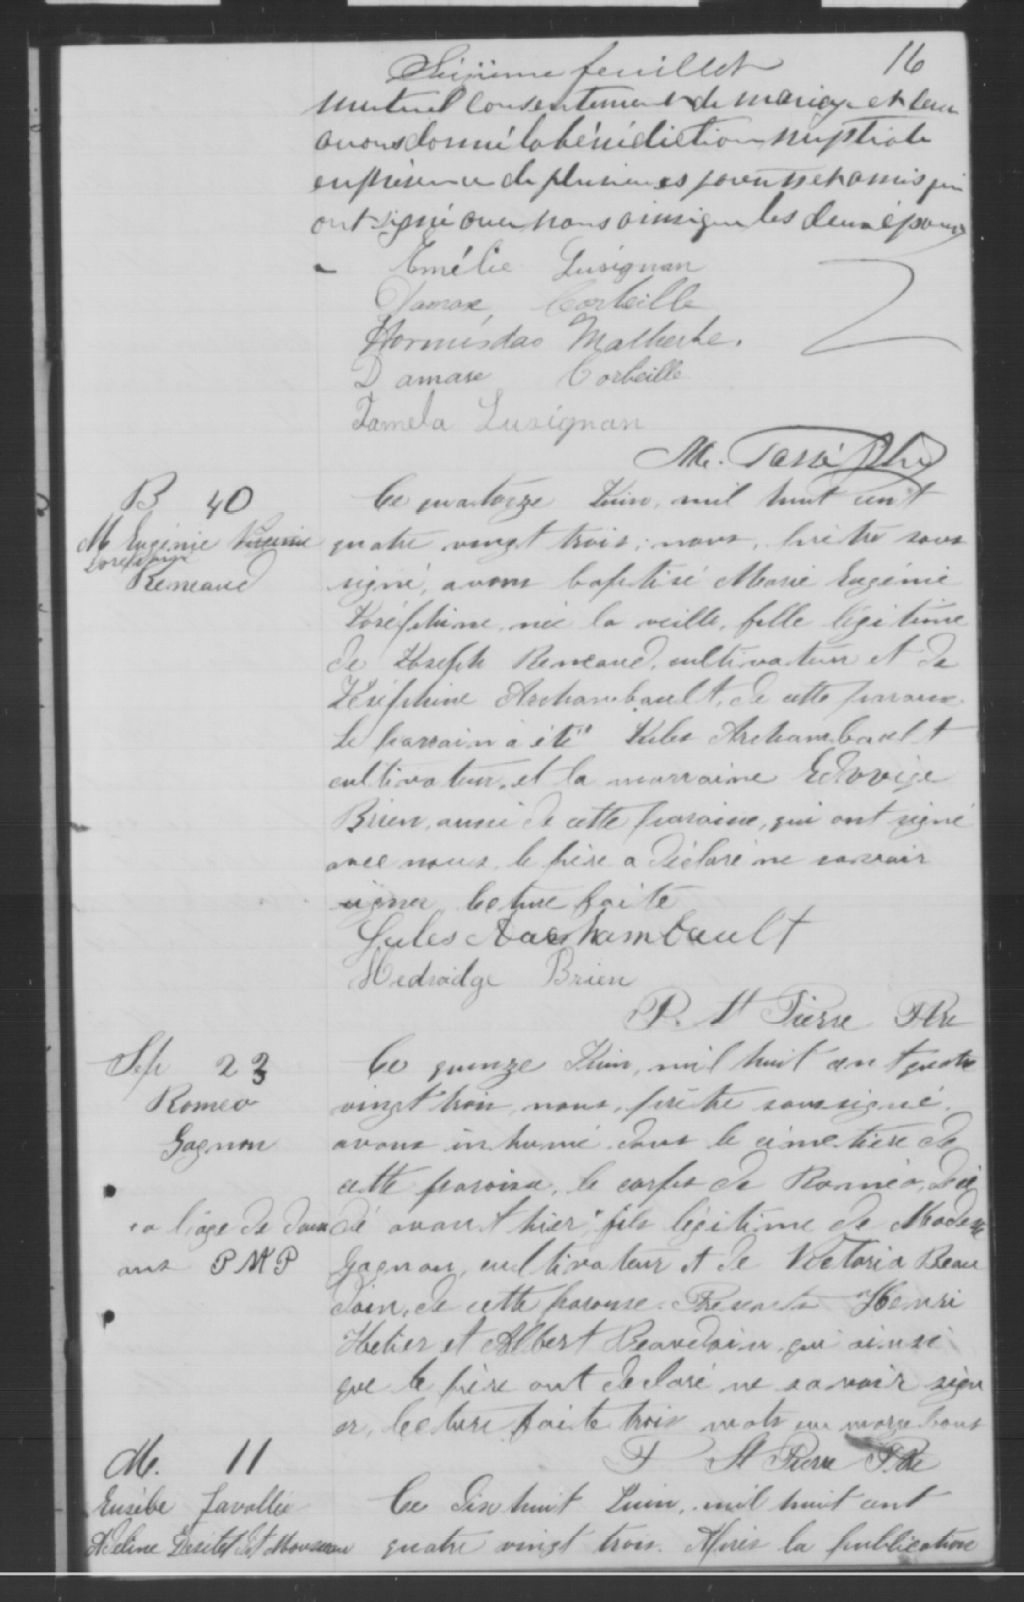 Seizième feuillet 16
mutuel consentement de mariage et leur
avons donné la bénédiction nuptiale
en présence de plusieurs parents et amis qui
ont signé avec nous ainsi que les deux époux
Emélie Lusignan
Damase Corbeille
Hormisdas Malherbe.
Damase Corbeille
Pamela Lusignan
M. Tassé Ptre
B 40
M Eugénie
Joséphine
Reneaud
Ce quatorze Juin, mil huit cent
quatre vingt trois; nous, prêtre sous
signé, avons baptisé Marie Eugénie
Joséphine, née la veille, fille légitime
de Joseph Reneaud, cultivateur et de
Joséphine Archambault, de cette paroisse
Le parrain a été Jules Archambault
cultivateur, et la marraine Edwige
Brien, aussi de cette paroisse, qui ont signé
avec nous, le père a déclaré ne savoir
signer lecture faite
Jules Archambault
Hedwidge Brien
P. St Pierre Ptre
Sep 23
Romeo
Gagnon
à l'âge de deux
ans P M P
Ce quinze Juin, mil huit cent quatre
vingt trois, nous, prêtre soussigné,
avons inhumé dans le cimetière de
cette paroisse, le corps de Roméo, décé
dé avant hier fils légitime de Modeste
Gagnon, cultivateur et de Victoria Beau
doin, de cette paroisse. Présents Henri
Hetier et Albert Beaudoin qui ainsi
que le père ont déclaré ne savoir sign
er, lecture faite trois mots en marge bons
P St Pierre Ptre
M. 11
Eusèbe Javallée
Adeline Desilet dit Mousseau
Ce dix huit Juin, mil huit cent
quatre vingt trois. Après la publication